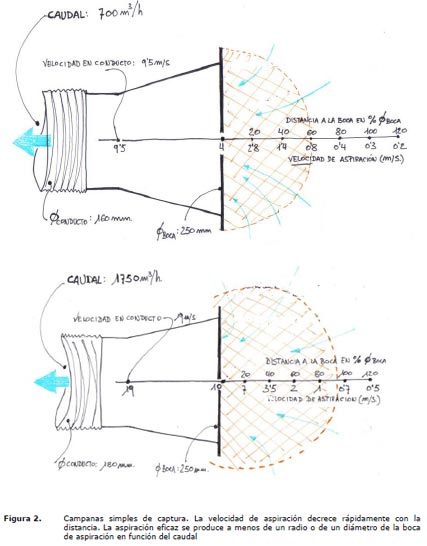 CAUDAL: 700 m³/h
VELOCIDAD EN CONDUCTO: 9'5 m/s
DISTANCIA A LA BOCA EN % Ø BOCA
20 40 60 80 100 120
9'5 4 2'8 1'4 0'8 0'4 0'3 0'2
VELOCIDAD DE ASPIRACIÓN (m/s.)
Ø CONDUCTO: 160 mm.
Ø BOCA: 250 mm
CAUDAL: 1750 m³/h
VELOCIDAD EN CONDUCTO 19 m/s
DISTANCIA A LA BOCA EN % Ø BOCA
20 40 60 80 100 120
19 10 7 3'5 2 1 0'7 0'5
VELOCIDAD DE ASPIRACIÓN (m/s)
Ø CONDUCTO: 180 mm.
Ø BOCA: 250 mm.
Figura 2. Campanas simples de captura. La velocidad de aspiración decrece rápidamente con la
distancia. La aspiración eficaz se produce a menos de un radio o de un diámetro de la boca
de aspiración en función del caudal